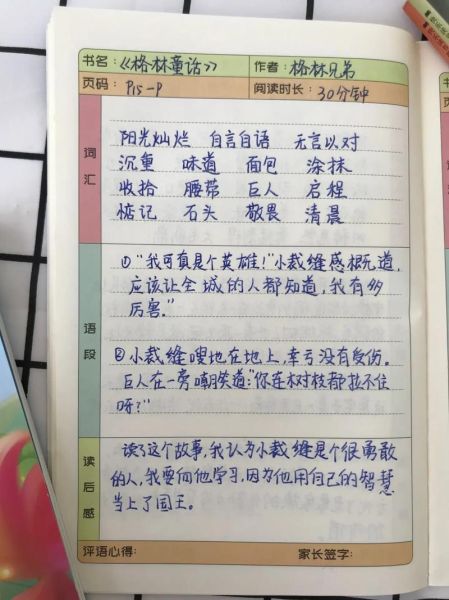 书名：《格林童话》 作者：格林兄弟
页码：P15-P 阅读时长：30分钟
词汇
阳光灿烂 自言自语 无言以对
沉重 味道 面包 涂抹
收拾 腰带 巨人 启程
惦记 石头 敬畏 清晨
语段
①“我可真是个英雄！”小裁缝感慨道，
应该让全城的人都知道，我有多
厉害。”
②小裁缝嗖地在地上，幸亏没有受伤。
巨人在一旁嘲笑道：“你连树枝都拉不住
呀？”
读后感
读了这个故事，我认为小裁缝是个很勇敢
的人，我要向他学习，因为他用自己的智慧
当上了国王。
评语心得： 家长签字：